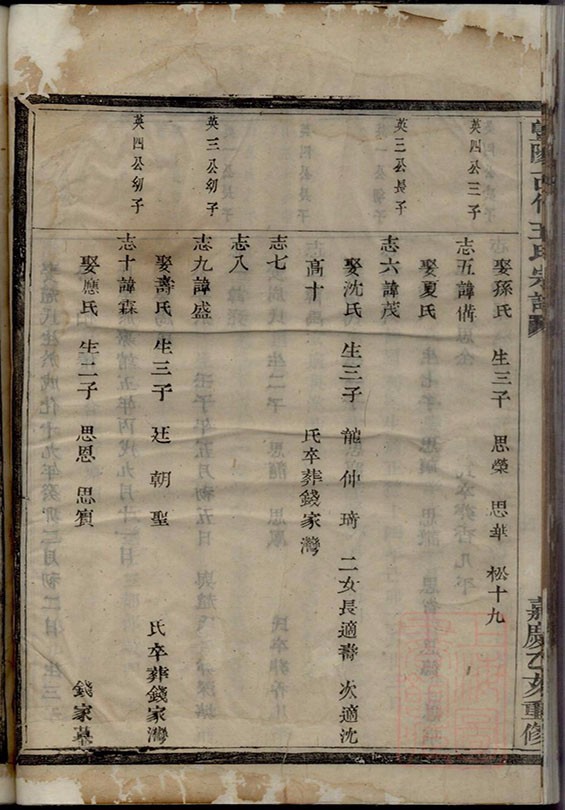 王氏宗譜
嘉慶乙亥重修
娶孫氏 生三子 思榮 思華 松十九
英四公三子
志五諱備
娶夏氏
英三公長子
志六諱茂
娶沈氏 生三子 龍 仲 琦 二女長適壽 次適沈
高十 氏卒葬錢家灣
志七
志八
英三公幼子
志九諱盛
娶壽氏 生三子 廷 朝 聖 氏卒葬錢家灣
英四公幼子
志十諱森
娶應氏 生二子 思恩 思賓 錢家墓